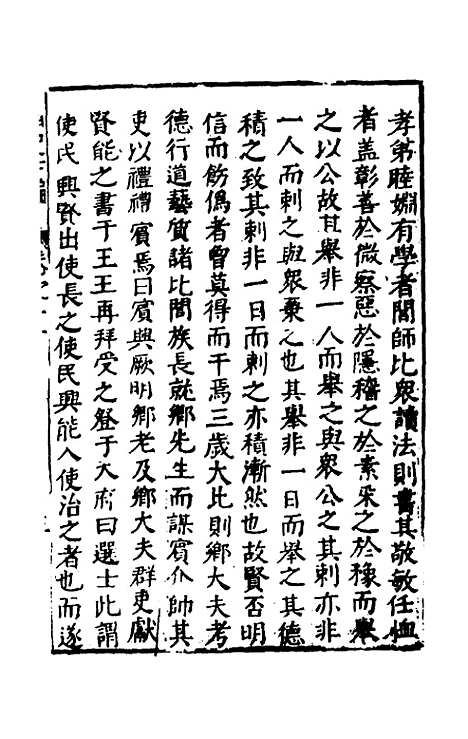 孝弟睦婣有學者閭師比衆讀法則書其敬敏任恤
者盖彰善於微察惡於隱稽之於素采之於豫而舉
之以公故其舉非一人而舉之與衆公之其刺亦非
一人而刺之與衆棄之也其舉非一日而舉之其德
積之致其刺非一日而刺之亦積漸然也故賢否明
信而飭僞者曾莫得而干焉三歲大比則鄉大夫考
德行道藝質諸比閭族長就鄉先生而謀賓介帥其
吏以禮禮賓焉曰賓興厥明鄉老及鄉大夫群吏獻
賢能之書于王王再拜受之登于天府曰選士此謂
使民興賢出使長之使民興能入使治之者也而遂